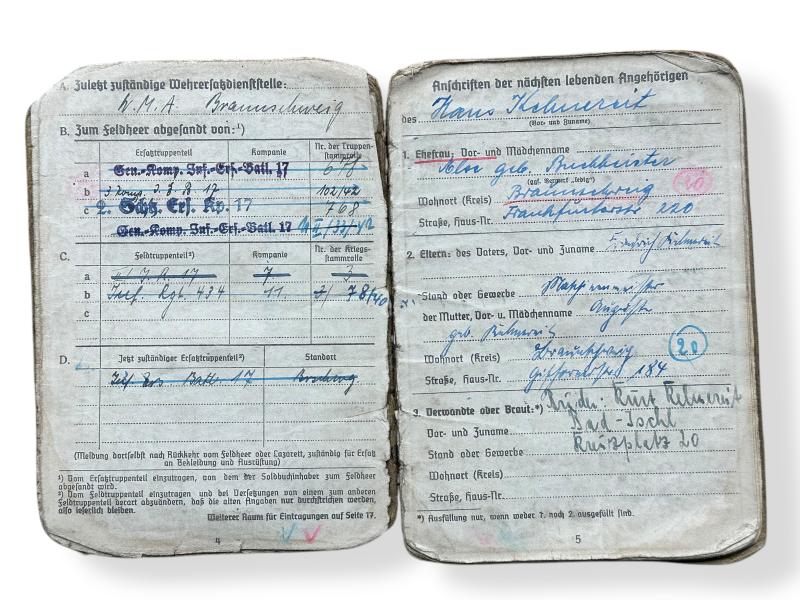 A. Zuletzt zuständige Wehrersatzdienststelle:
W. M. A Braunschweig
B. Zum Feldheer abgesandt von:¹)
Ersatztruppenteil Kompanie Nr. der Truppenstammrolle
a Gen.-Komp. Inf.-Ers.-Batl. 17 678
b 3. Komp. J. E. B. 17 102/42
c 2. Schtz. Ers. Kp. 17 768
Gen.-Komp. Inf.-Ers.-Batl. 17
C. Feldtruppenteil²) Kompanie Nr. der Kriegsstammrolle
a J. R. 17 7 3
b Inf. Rgt. 434 11 78/40
c
D. Jetzt zuständiger Ersatztruppenteil²) Standort
Inf Ers Batl. 17 Brschwg
(Meldung dortselbst nach Rückkehr vom Feldheer oder Lazarett, zuständig für Ersatz
an Bekleidung und Ausrüstung)
¹) Vom Ersatztruppenteil einzutragen, von dem der Soldbuchinhaber zum Feldheer
abgesandt wird.
²) Vom Feldtruppenteil einzutragen und bei Versetzungen von einem zum anderen
Feldtruppenteil derart abzuändern, daß die alten Angaben nur durchstrichen werden,
also leserlich bleiben.
Weiterer Raum für Eintragungen auf Seite 17.
4
Anschriften der nächsten lebenden Angehörigen
des Hans Kelmereit
(Vor- und Zuname)
1. Ehefrau: Vor- und Mädchenname
geb.
(ggf. Vermerk „ledig“)
Wohnort (Kreis) Braunschweig
Straße, Haus-Nr. Frankfurterstr 220
20
2. Eltern: des Vaters, Vor- und Zuname Friedrich Kelmereit
Stand oder Gewerbe
der Mutter, Vor- u. Mädchenname Auguste
geb. Kelmereit
Wohnort (Kreis) Braunschweig
20
Straße, Haus-Nr. Gifhornerstr 184
3. Verwandte oder Braut:*) Bruder: Kurt Kelmereit
Vor- und Zuname Bad-Ischl
Stand oder Gewerbe Kurzplatz 20
Wohnort (Kreis)
Straße, Haus-Nr.
*) Ausfüllung nur, wenn weder 1. noch 2. ausgefüllt sind.
5